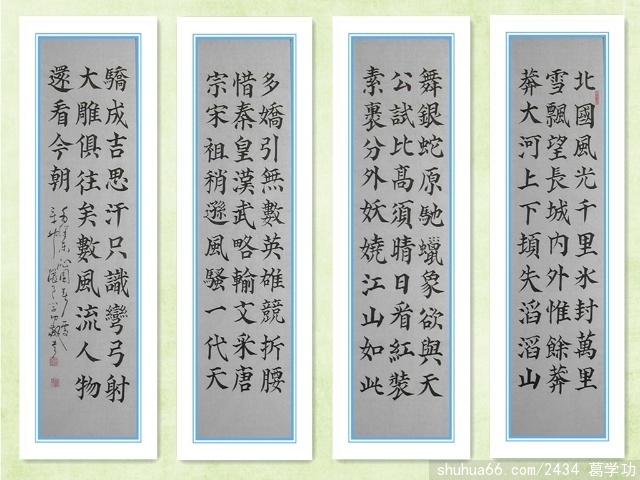 北國風光千里氷封萬里
雪飄望長城內外惟餘莽
莽大河上下頓失滔滔山
舞銀蛇原馳蠟象欲與天
公試比髙須晴日看紅裝
素裹分外妖嬈江山如此
多嬌引無數英雄競折腰
惜秦皇漢武略輸文采唐
宗宋祖稍遜風騷一代天
驕成吉思汗只識彎弓射
大雕俱往矣數風流人物
還看今朝
毛澤東沁園春雪
shuhua66.com/2434 葛学功